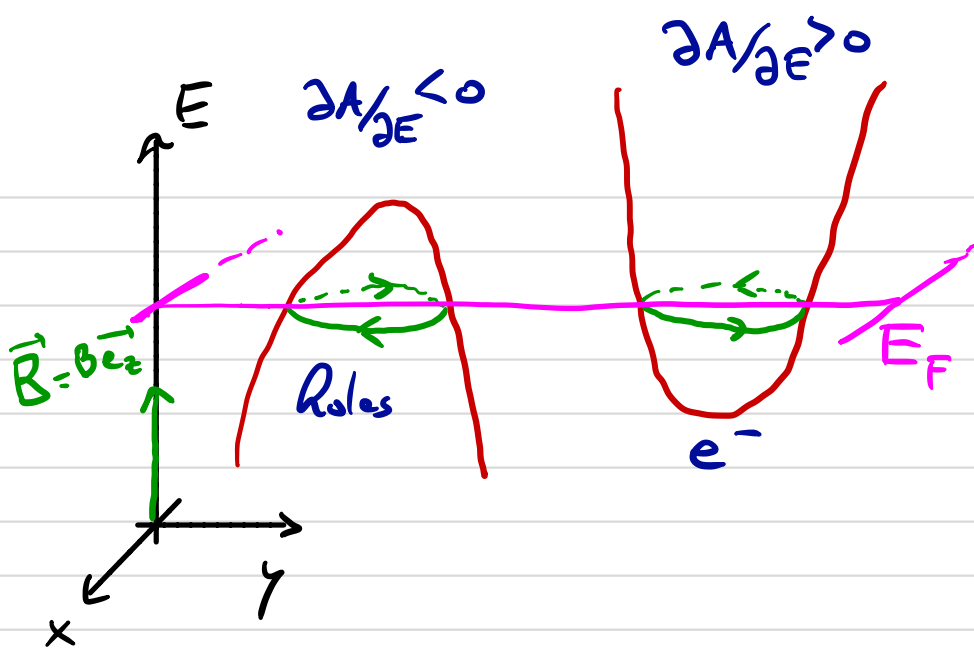 E
∂A/∂E < 0
∂A/∂E > 0
B⃗ = B e⃗z
Holes
E_F
e⁻
y
x